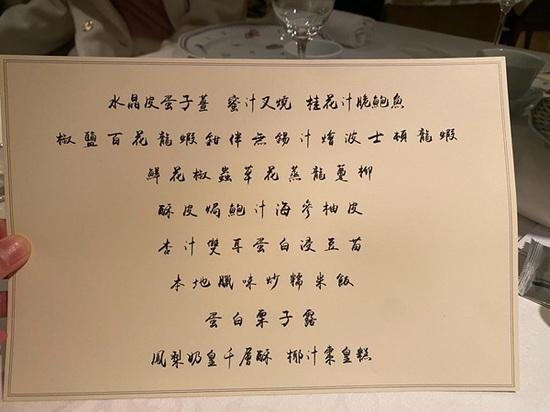 水晶皮蛋子薑 蜜汁叉燒 桂花汁脆鮑魚
椒鹽百花龍蝦鉗伴無錫汁燴波士頓龍蝦
鮮花椒蟲草花蒸龍躉柳
酥皮焗鮑汁海參柚皮
杏汁雙耳蛋白浸豆苗
本地臘味炒糯米飯
蛋白栗子露
鳳梨奶皇千層酥 椰汁棗皇糕